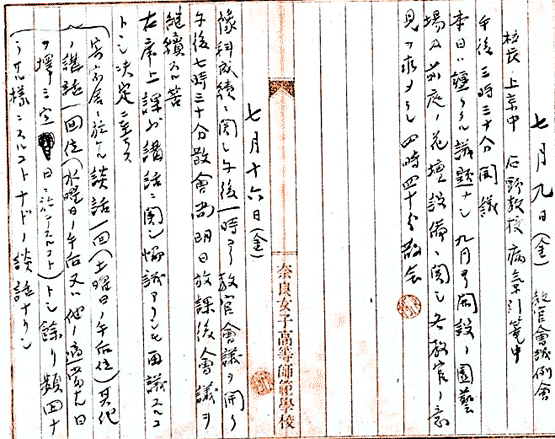 七月九日(金) 教官會議例會
校長上京中 石野教授病氣引篭中
午後三時三十分開議
本日ハ纏リタル議題ナシ 九月ヨリ開設ノ園藝
場及前庭ノ花壇設備ニ関シ各教官ノ意
見ヲ求メラレ四時四十分散会
奈良女子高等師範學校
七月十六日(金)
豫科成績ニ関シ午後一時ヨリ教官會議ヲ開ク
午後七時三十分散會尚明日放課後會議ヲ
継續スル筈
右席上課外講話ニ関シ協議アリシモ再議スルコ
トニ決定ニ至ラス
(寄宿舎ニ於ケル談話一回(土曜日ノ午后位)其他
ノ講話一回位(水曜日ノ午后又ハ他ノ適当ナル日
ヲ擇ミ定日ニスルコト)トシ餘リ類回ナ
ラサル様ニスルコトナドノ談話ナリシ